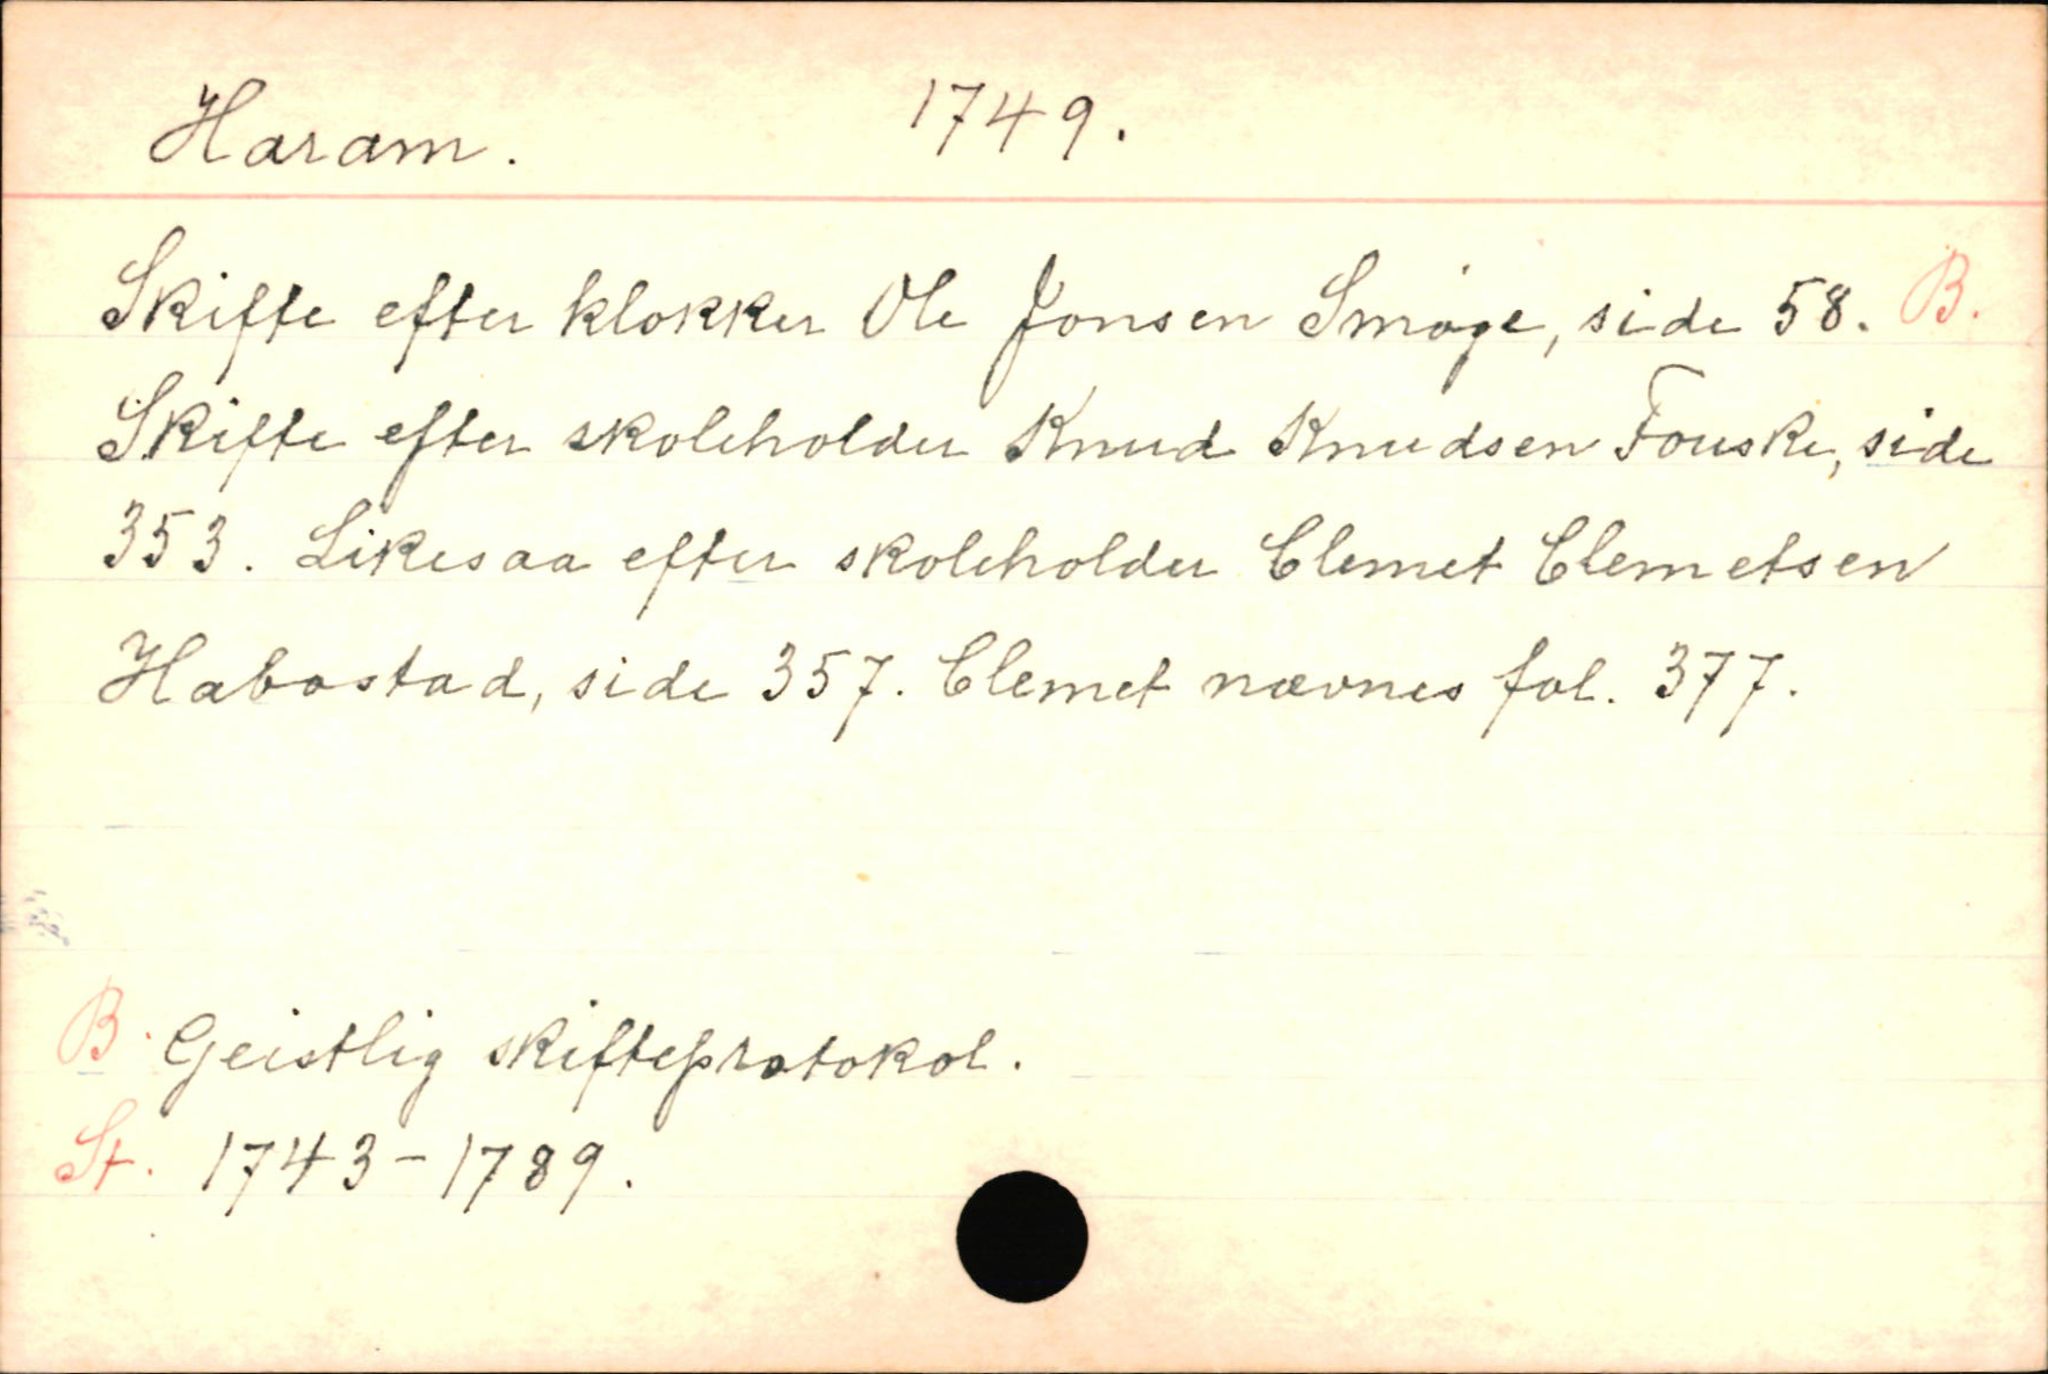 Haram. 1749.
Skifte efter klokker Ole Jonsen Smøge, side 58. B.
Skifte efter skoleholder Knud Knudsen Fouske, side
353. Likesaa efter skoleholder Clemet Clemetsen
Habostad, side 357. Clemet nævnes fol. 377.
B. Geistlig skifteprotokol.
St. 1743-1789.